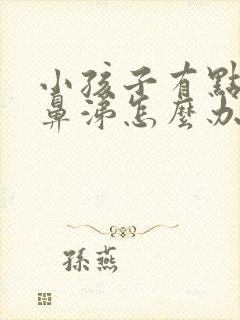 小孩子有點
鼻涕怎麼办
孫燕